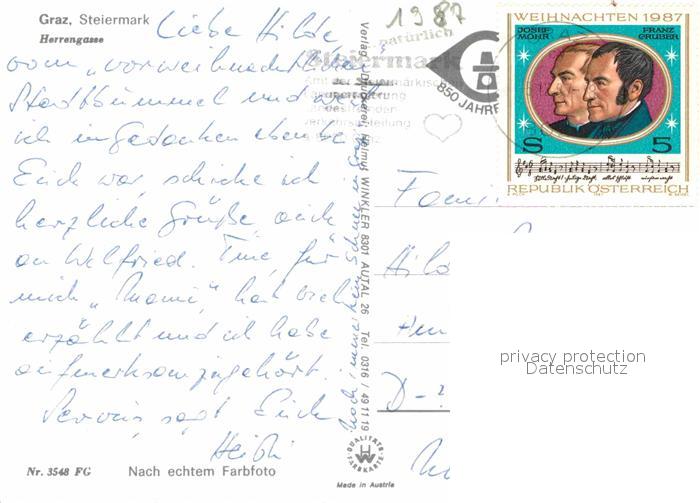 Graz, Steiermark
Herrengasse
Liebe Hilde
vom „vorweihnachtlichen"
Stadtbummel und weil
ich in Gedanken eben bei
Euch war, schicke ich
herzliche Grüße, auch
an Welfried.
mich „Mami" hat viel
erzählt und ich habe
aufmerksam zugehört.
Servus sagt Euch
Heidi
noch immer kein Schnee in Graz
Nr. 3548 FG
Nach echtem Farbfoto
Verlag u. Druckerei Helmut WINKLER 8301 AUTAL 26 Tel. 0316 / 49 11 19
QUALITÄTS
FARBKARTE
Made in Austria
1987
natürlich
Steiermark
850 JAHRE
WEIHNACHTEN 1987
JOSEF MOHR
FRANZ GRUBER
S 5
Stille Nacht! Heilige Nacht! alles schläft einsam wacht
REPUBLIK ÖSTERREICH
Fam.
D-
privacy protection
Datenschutz